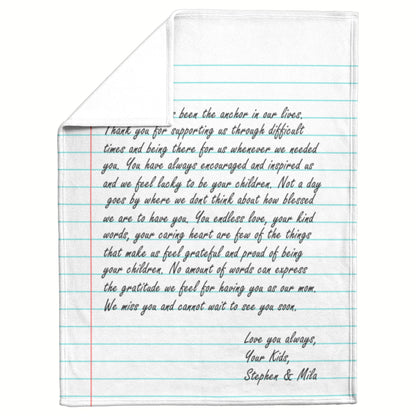 been the anchor in our lives.
Thank you for supporting us through difficult
times and being there for us whenever we needed
you. You have always encouraged and inspired us
and we feel lucky to be your children. Not a day
goes by where we dont think about how blessed
we are to have you. You endless love, your kind
words, your caring heart are few of the things
that make us feel grateful and proud of being
your children. No amount of words can express
the gratitude we feel for having you as our mom.
We miss you and cannot wait to see you soon.
Love you always,
Your Kids,
Stephen & Mila